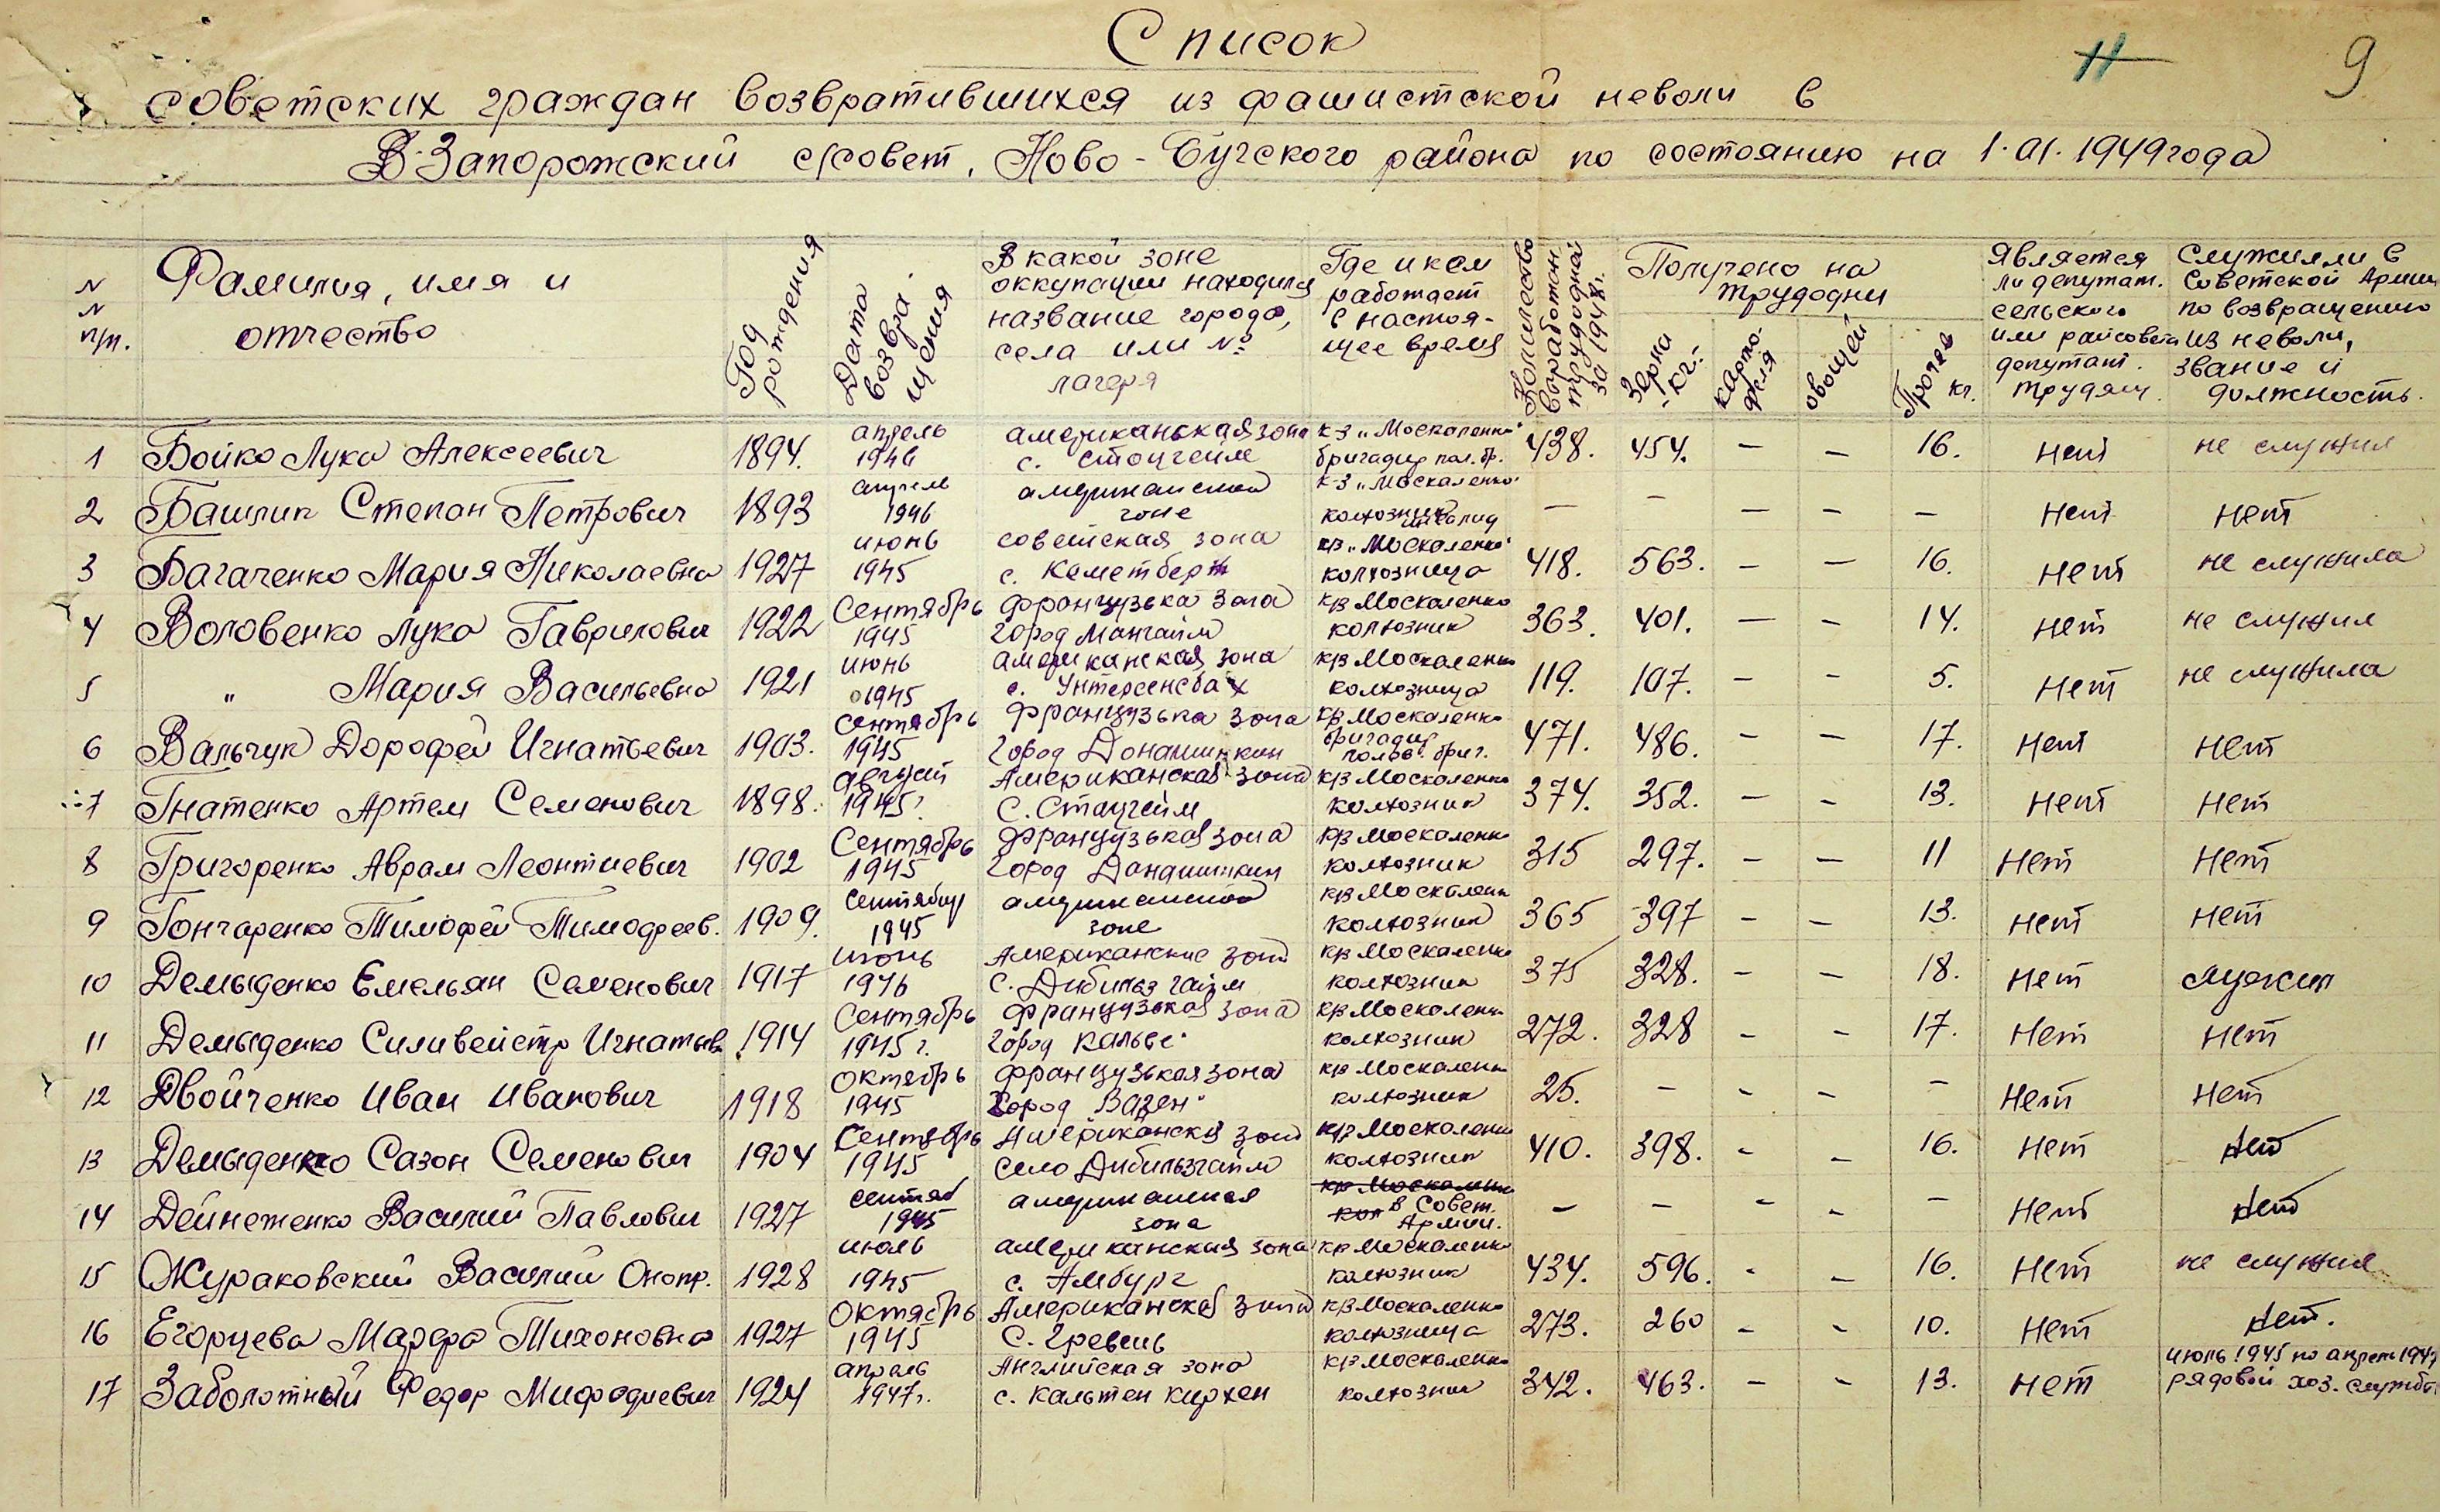 Список
11 9
советских граждан возвратившихся из фашистской неволи в
В-Запорожский с/совет, Ново-Бугского района по состоянию на 1.01.1949 года
N N п/п. Фамилия, имя и отчество Год рождения Дата возвращения В какой зоне оккупации находился название города, села или № лагеря Где и кем работает в настоящее время Количество выработан. трудодней за 1948г. Получено на трудодни Зерна кг. картофеля овощей Прочее кг. Является ли депутат. сельского или райсовета депутат. трудящ. Служил ли в Советской Армии по возвращению из неволи, звание и должность.
1 Бойко Лука Алексеевич 1894. апрель 1946 американькая зона с. Стоцгейм к-з „Москаленко" бригадир пол. бр. 438. 454. – – 16. нет не служил
2 Башлик Степан Петрович 1893 апрель 1946 американской зоне к-з „Москаленко" колхозник инвалид – – – – – нет нет
3 Багаченко Мария Николаевна 1927 июнь 1945 советская зона с. Кеметберг к/з „Москаленко" колхозница 418. 563. – – 16. нет не служила
4 Воловенко Лука Гаврилович 1922 Сентябрь 1945 французька зона город Мангайм к/з Москаленко колхозник 363. 401. – – 14. нет не служил
5 " Мария Васильевна 1921 июнь 1945 американская зона с. Унтерсенсбах к/з Москаленко колхозница 119. 107. – – 5. нет не служила
6 Вальчук Дорофей Игнатьевич 1903. Сентябрь 1945 французька зона город Донашинкин к/з Москаленко бригадир полев. бриг. 471. 486. – – 17. нет нет
7 Гнатенко Артем Семенович 1898. август 1945г. Американская зона С. Стацгейм к/з Москаленко колхозник 374. 352. – – 13. нет нет
8 Григоренко Аврам Леонтиевич 1902 Сентябрь 1945 французькая зона город Донашинкин к/з Москаленко колхозник 315 297. – – 11 нет нет
9 Гончаренко Тимофей Тимофеев. 1909. Сентябрь 1945 американской зоне к/з Москаленко колхозник 365 397 – – 13. нет нет
10 Демыденко Емельян Семенович 1917 июнь 1946 Американские зона С. Дибильзгайм к/з Москаленко колхозник 375 328. – – 18. нет служил
11 Демыденко Силивейстр Игнатьев. 1914 Сентябрь 1945г. французькая зона город Кальве к/з Москаленко колхозник 272. 328 – – 17. нет нет
12 Двойченко Иван Иванович 1918 Октябрь 1945 французькая зона город Вазен к/з Москаленко колхозник 25. – – – – нет нет
13 Демыденко Сазон Семенович 1904 Сентябрь 1945 Американская зона Село Дибильзгайм к/з Москаленко колхозник 410. 398. – – 16. нет нет
14 Дейнеженко Василий Павлович 1927 Сентяб 1945 американская зона к/з Москаленко кол в Совет. Армии. – – – – – нет нет
15 Жураковский Василий Онопр. 1928 июль 1945 американская зона с. Амбург к/з Москаленко колхозник 434. 596. – – 16. нет не служил
16 Егорцева Марфа Тихоновна 1927 Октябрь 1945 Американская зона С. Гревень к/з Москаленко колхозница 273. 260 – – 10. нет нет.
17 Заболотный Федор Мифодиевич 1924 апрель 1947г. Английская зона с. Кальтен кирхен к/з Москаленко колхозник 342. 463. – – 13. нет июль 1945 по апрель 1947 рядовой хоз. службы